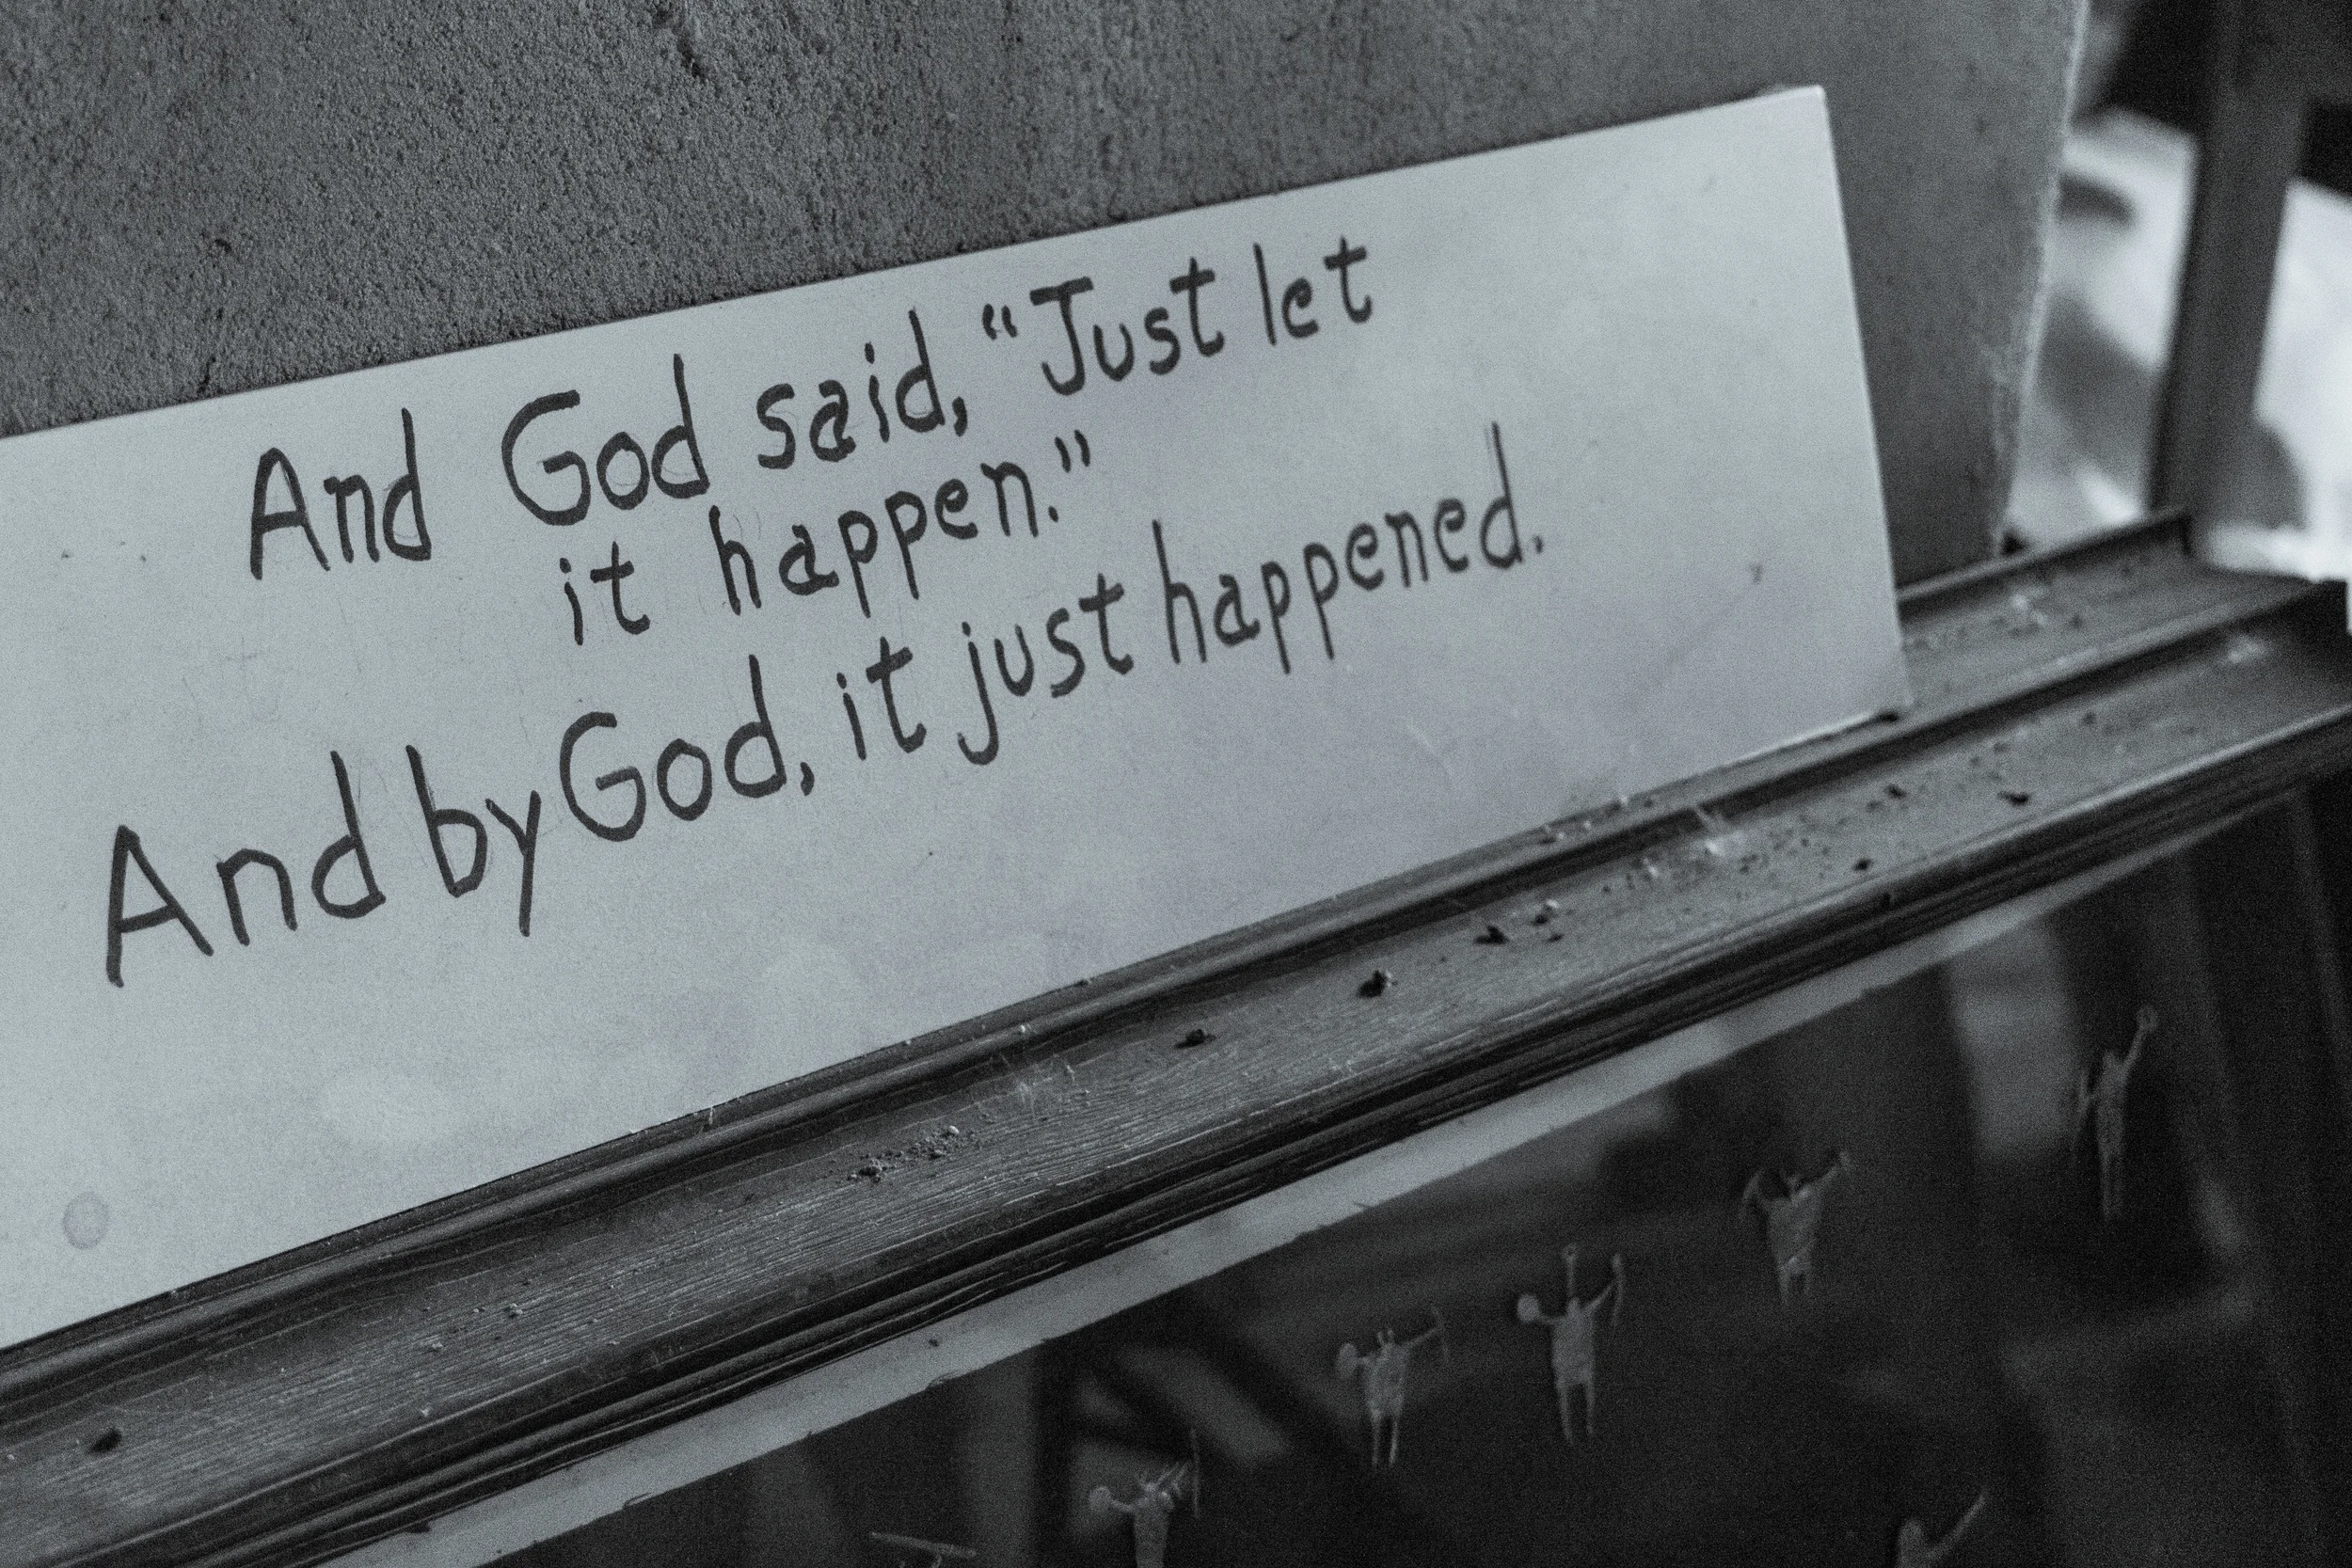 And God said, “Just let
it happen.”
And by God, it just happened.